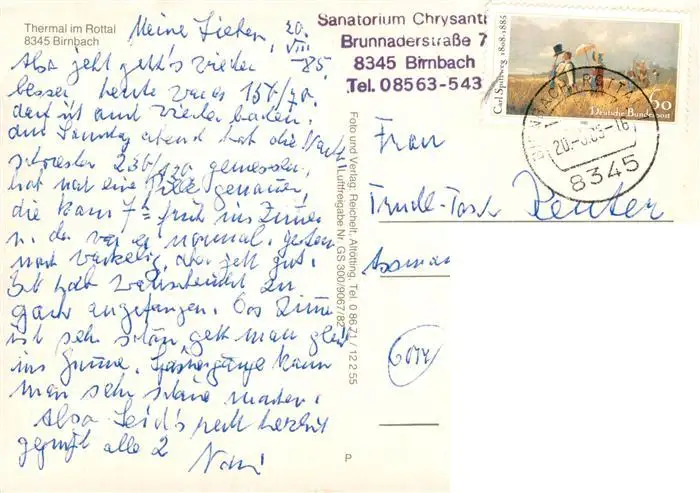 Thermal im Rottal
8345 Birnbach
Meine Lieben, 20.
VIII
85.
Also jetzt geht's wieder
besser heute war es 150/70.
darf ich auch wieder baden.
am Samstag abend hat die Nacht
schwester 230/120 gemessen,
hat mir eine Pille gegeben,
die kam 7h früh ins Zimmer
u. da war es normal, gestern
noch wackelig, aber jetzt gut.
hat wahrscheinlich zu
ganz angefangen. Das Zimmer
ist sehr schön, geht man gleich
ins Grüne. Spaziergänge kann
man sehr schöne machen.
Also seid's recht herzlich
gegrüßt alle 2
Foto und Verlag: Reichelt, Altötting, Tel. 0 86 71 / 12 2 55
Luftfreigabe Nr. GS 300/9067/82
P
Sanatorium Chrysanti
Brunnaderstraße 7
8345 Birnbach
Tel. 08563-543
Carl Spitzweg 1808-1885
60
Deutsche Bundespost
20.-8.85-16
8345
Frau
Reuter